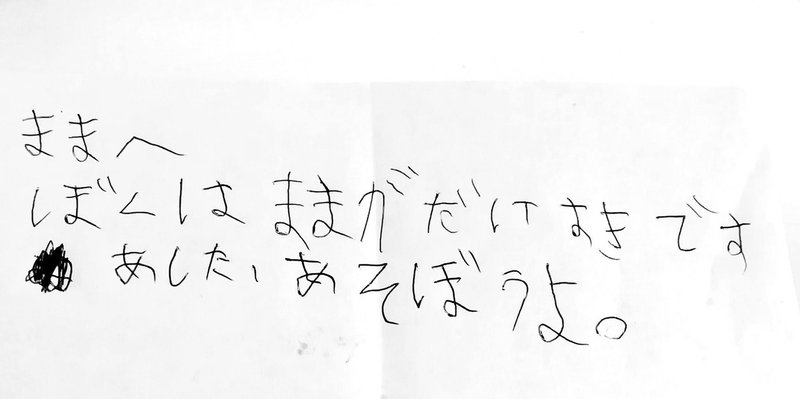 ままへ
ぼくは ままが だけ すきです
あした、あそぼうよ。